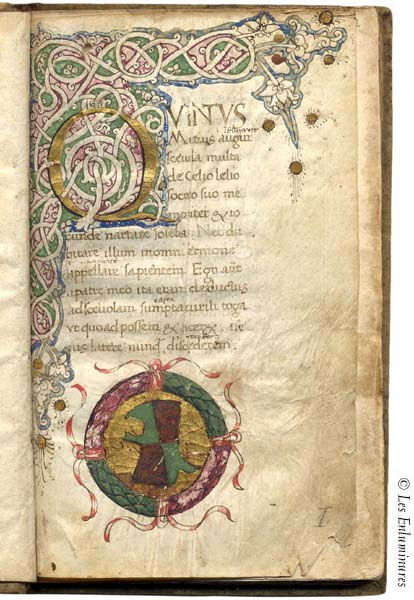 QVINTVS
Mutius augur
scęuola multa
de Celio lelio
socero suo me
moriter & io
cunde narrare solebat Nec du
bitare illum in omni sermone
appellare sapientem. Ego aut
a patre meo ita eram deductus
ad scęuolam sumpta virili toga
vt quoad possem &
latere nunq discederem.
I
© Les Enluminures